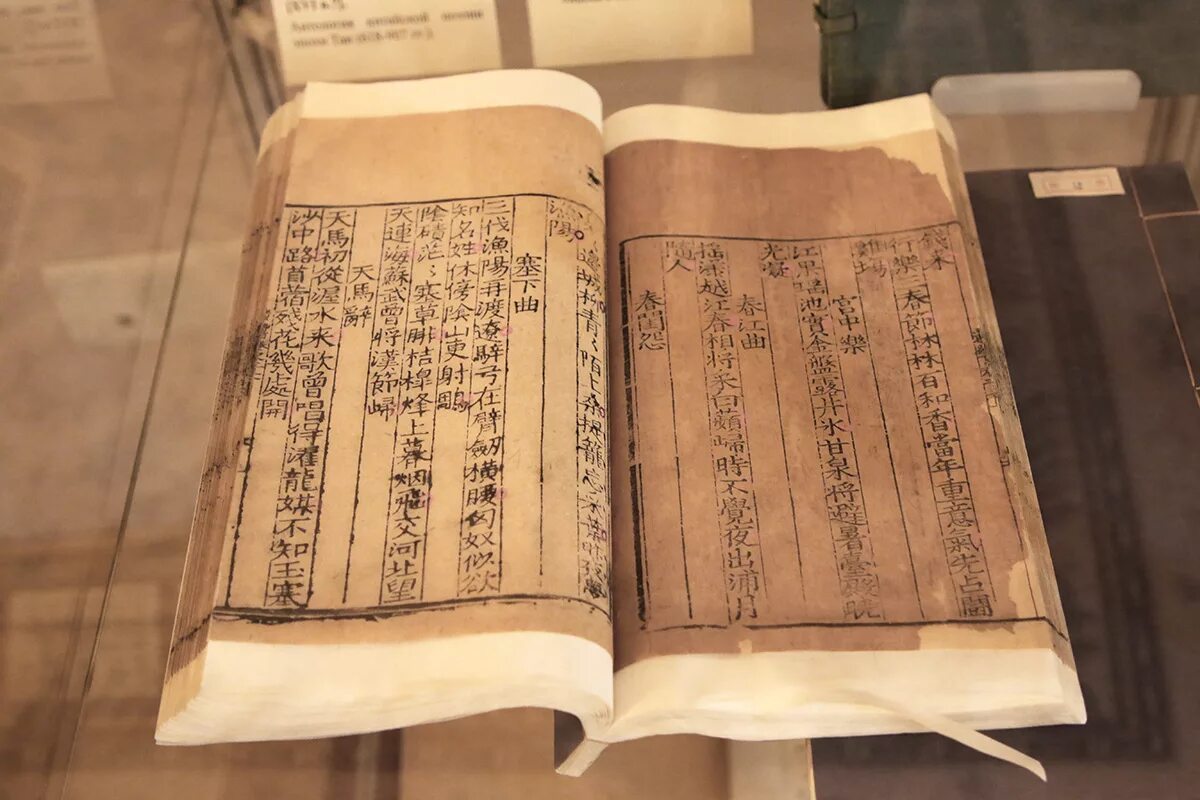 Антология китайской поэзии
эпохи Тан (618-907 гг.).
行樂三春節林林百和香當年重意氣先占鬪
雞場
宮中樂
江果瑶池實金盤露井氷甘泉將避暑臺殿曉
光凝
春江曲
搖漾越江春相將采白蘋歸時不覺夜出浦月
隨人
春閨怨
邊城柳青〻陌上桑提籠忘采葉昨夜夢
漁陽
塞下曲
三代漁陽再渡遼騂弓在臂劒橫腰匈奴似欲
知名姓休傍陰山更射鵰
陰磧茫〻塞草腓桔槔烽上暮烟飛交河北望
天連海蘇武曾將漢節歸
天馬辭
天馬初從渥水来歌曾唱得濯龍媒不知玉塞
沙中路苜蓿殘花幾處開